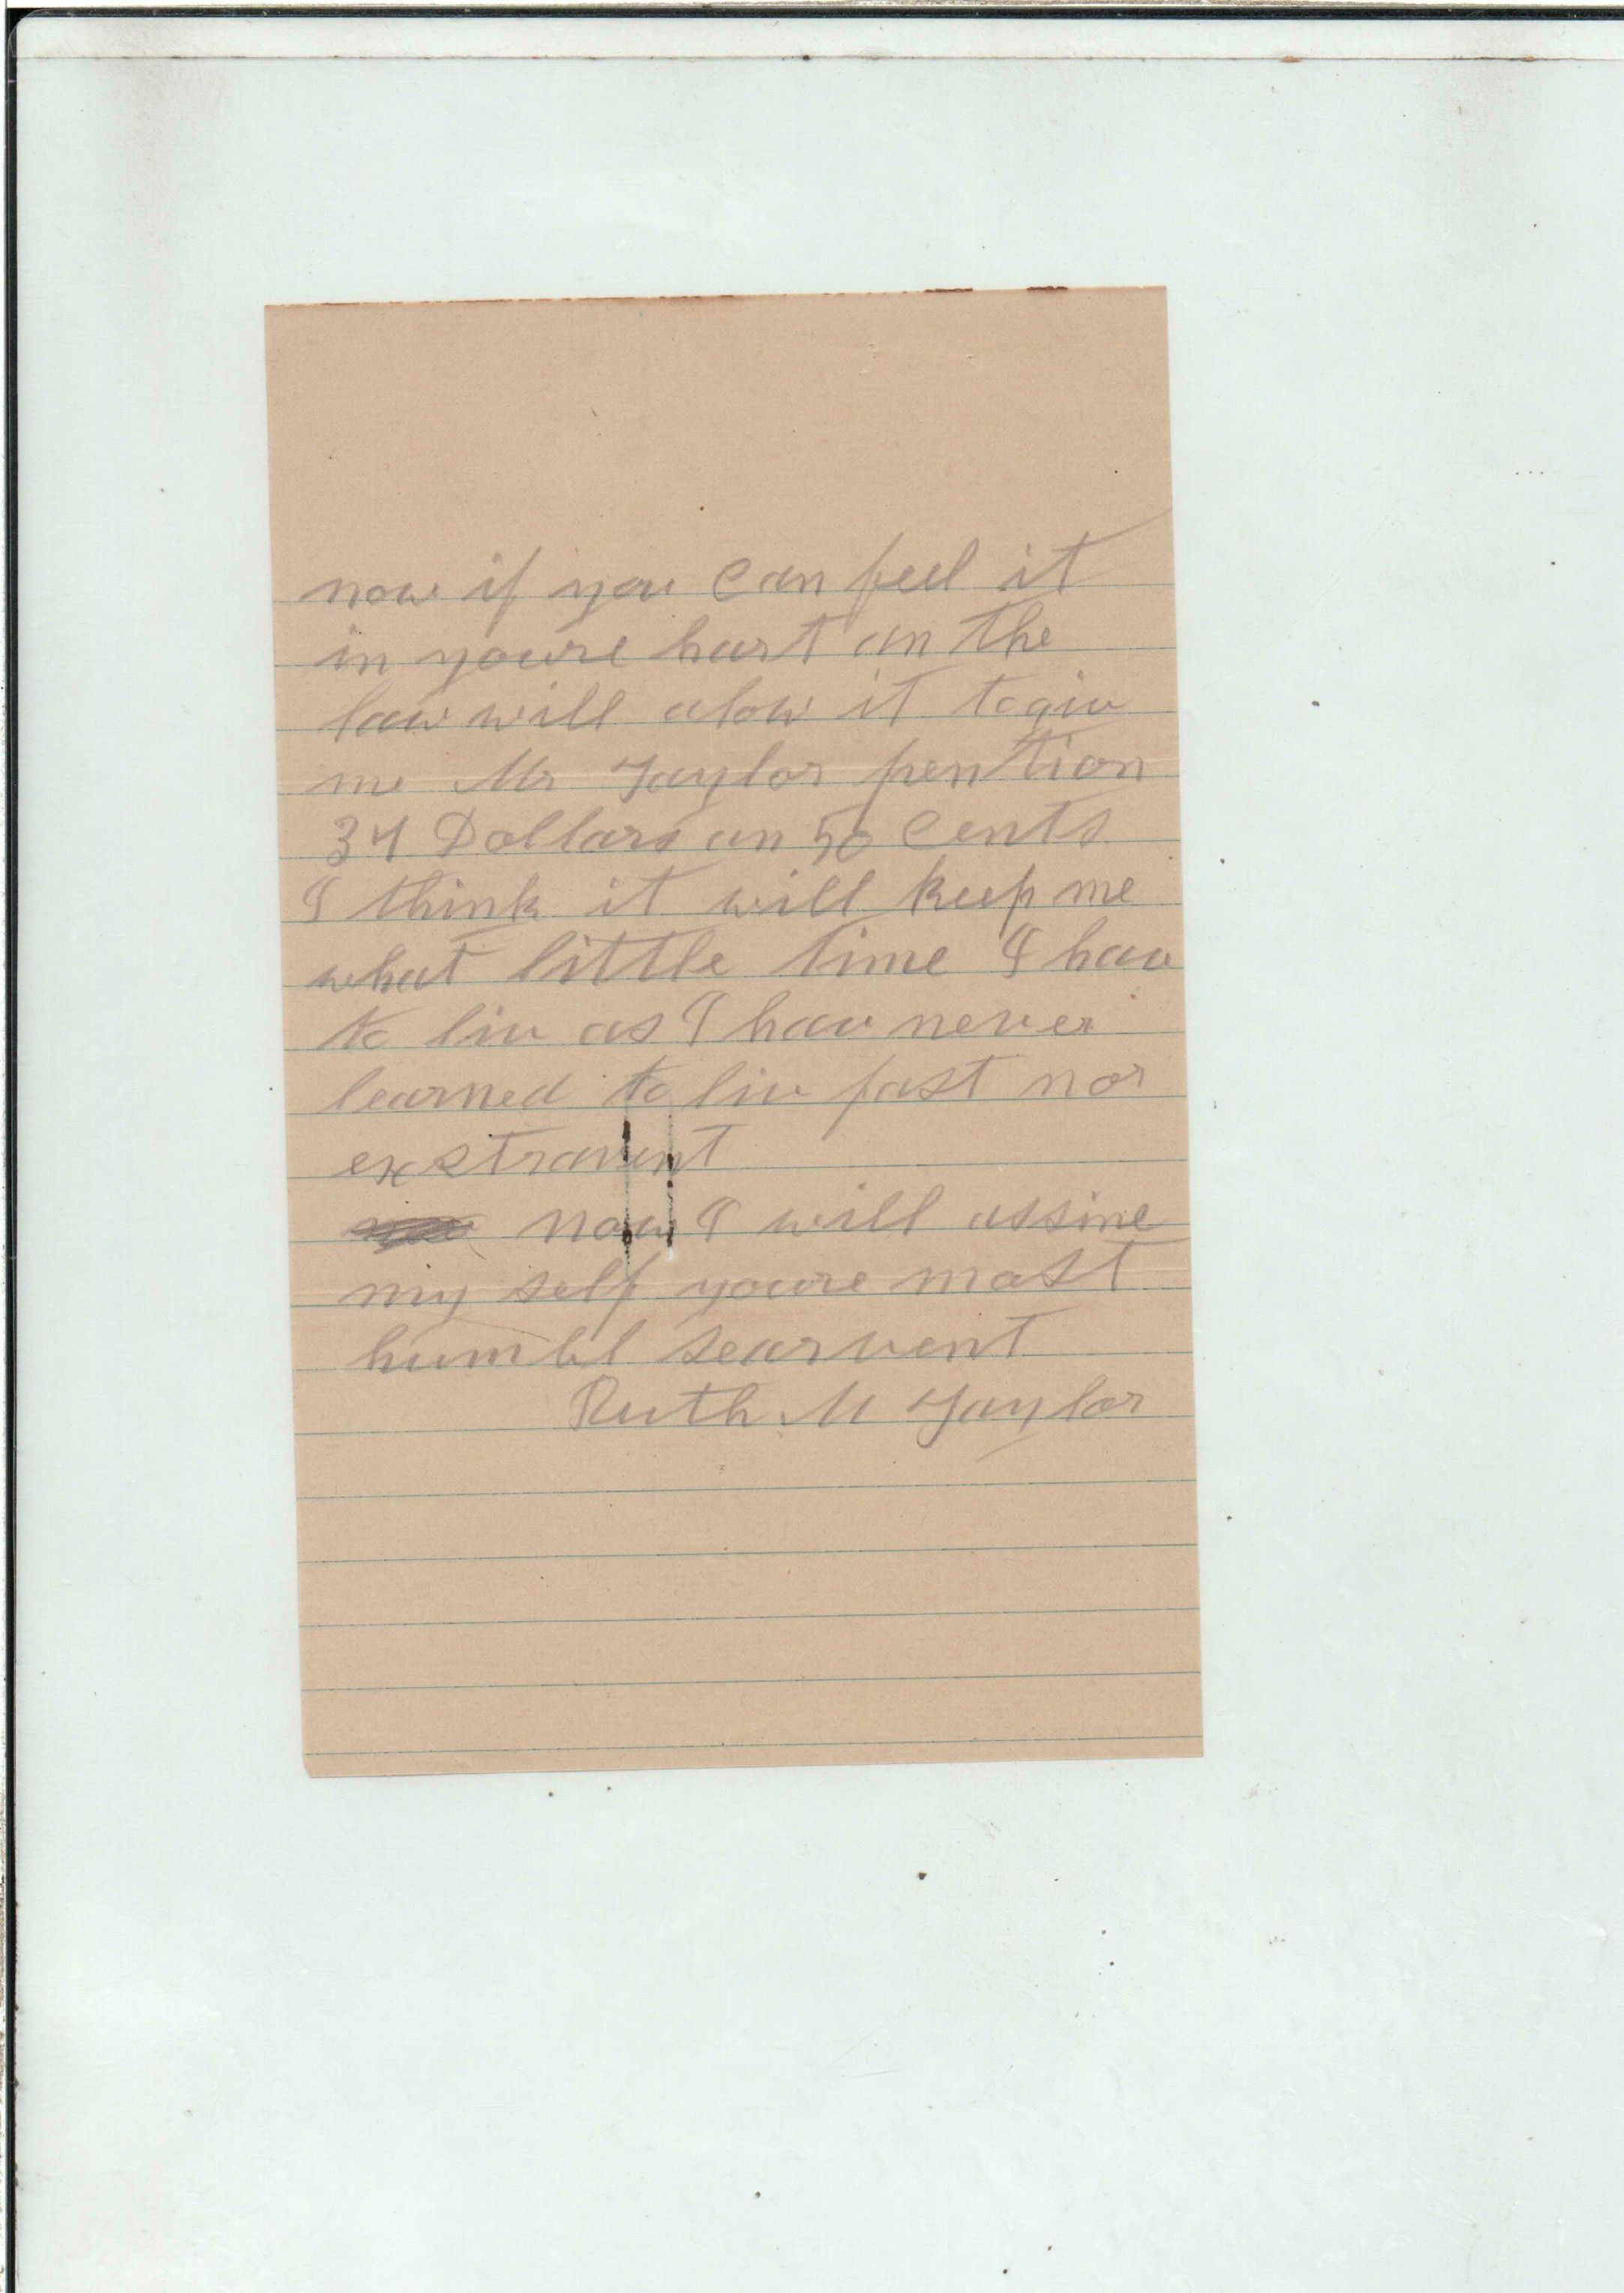 now if you can feel it
in youre hart an the
law will alow it to giv
me Mr Taylor pention
34 Dollars an 50 cents
I think it will keep me
what little time I hav
to liv as I hav never
learned to liv fast nor
exstravent
now I will assine
my self youre most
humbl searvent
Ruth M Taylor